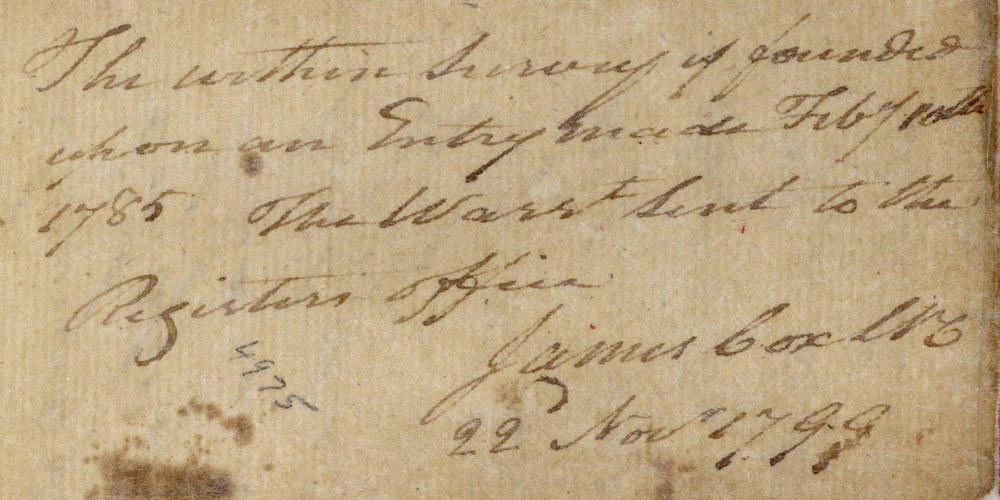 The within Survey is founded
upon an Entry made Feby 10th
1785 The Warrt Sent to the
Registers office
James Cox
4975
22 Novr 1799